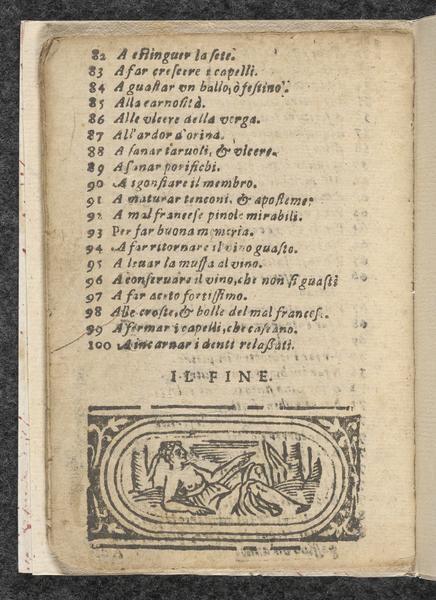 82 A estinguer la sete.
83 A far crescere i capelli.
84 A guastar vn ballo, ò festino.
85 Alla carnosità.
86 Alle vlcere della verga.
87 All'ardor d'orina.
88 A sanar taruoli, & vlcere.
89 A sanar porifichi.
90 A sgonfiare il membro.
91 A maturar tenconi, & aposteme.
92 A mal francese pinole mirabili.
93 Per far buona memoria.
94 A far ritornare il vino guasto.
95 A leuar la muffa al vino.
96 A conseruare il vino, che non si guasti
97 A far aceto fortissimo.
98 Alle croste, & bolle del mal francese.
99 A fermar i capelli, che cascano.
100 A incarnar i denti relassati.
IL FINE.